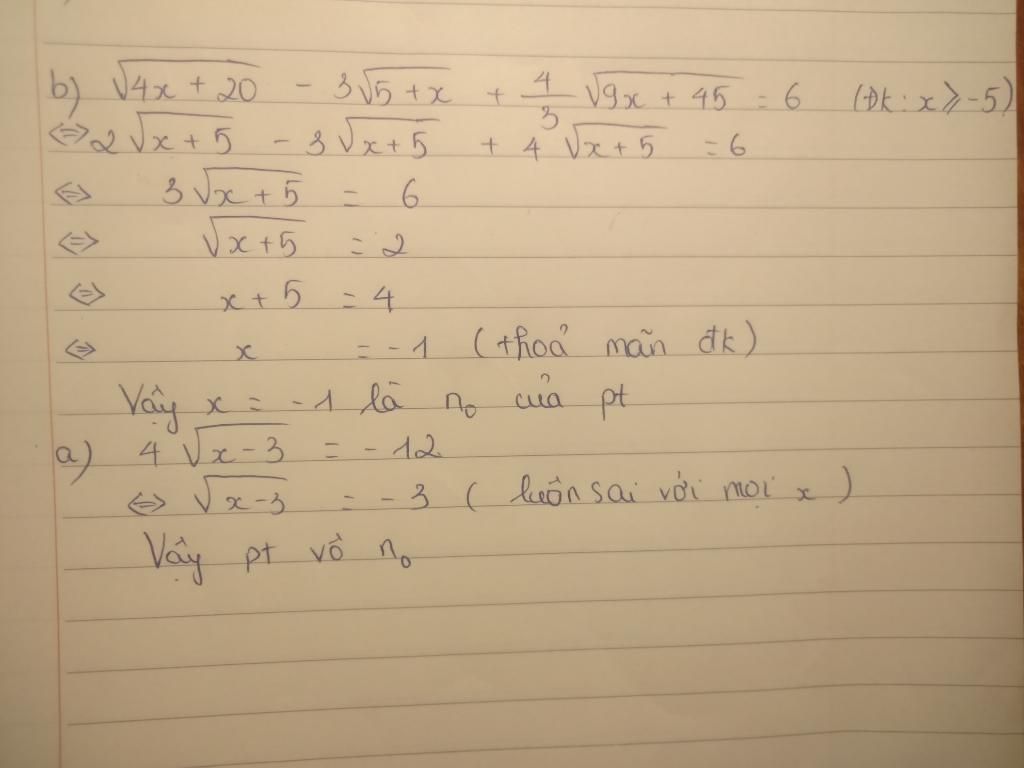 b) √(4x + 20) - 3√(5 + x) + 4/3 √(9x + 45) = 6 (Đk : x ≥ -5)
⇔ 2√(x + 5) - 3√(x + 5) + 4√(x + 5) = 6
⇔ 3√(x + 5) = 6
⇔ √(x + 5) = 2
⇔ x + 5 = 4
⇔ x = -1 (thoả mãn đk)
Vậy x = -1 là n₀ của pt
a) 4√(x - 3) = -12
⇔ √(x - 3) = -3 (luôn sai với mọi x)
Vậy pt vô n₀